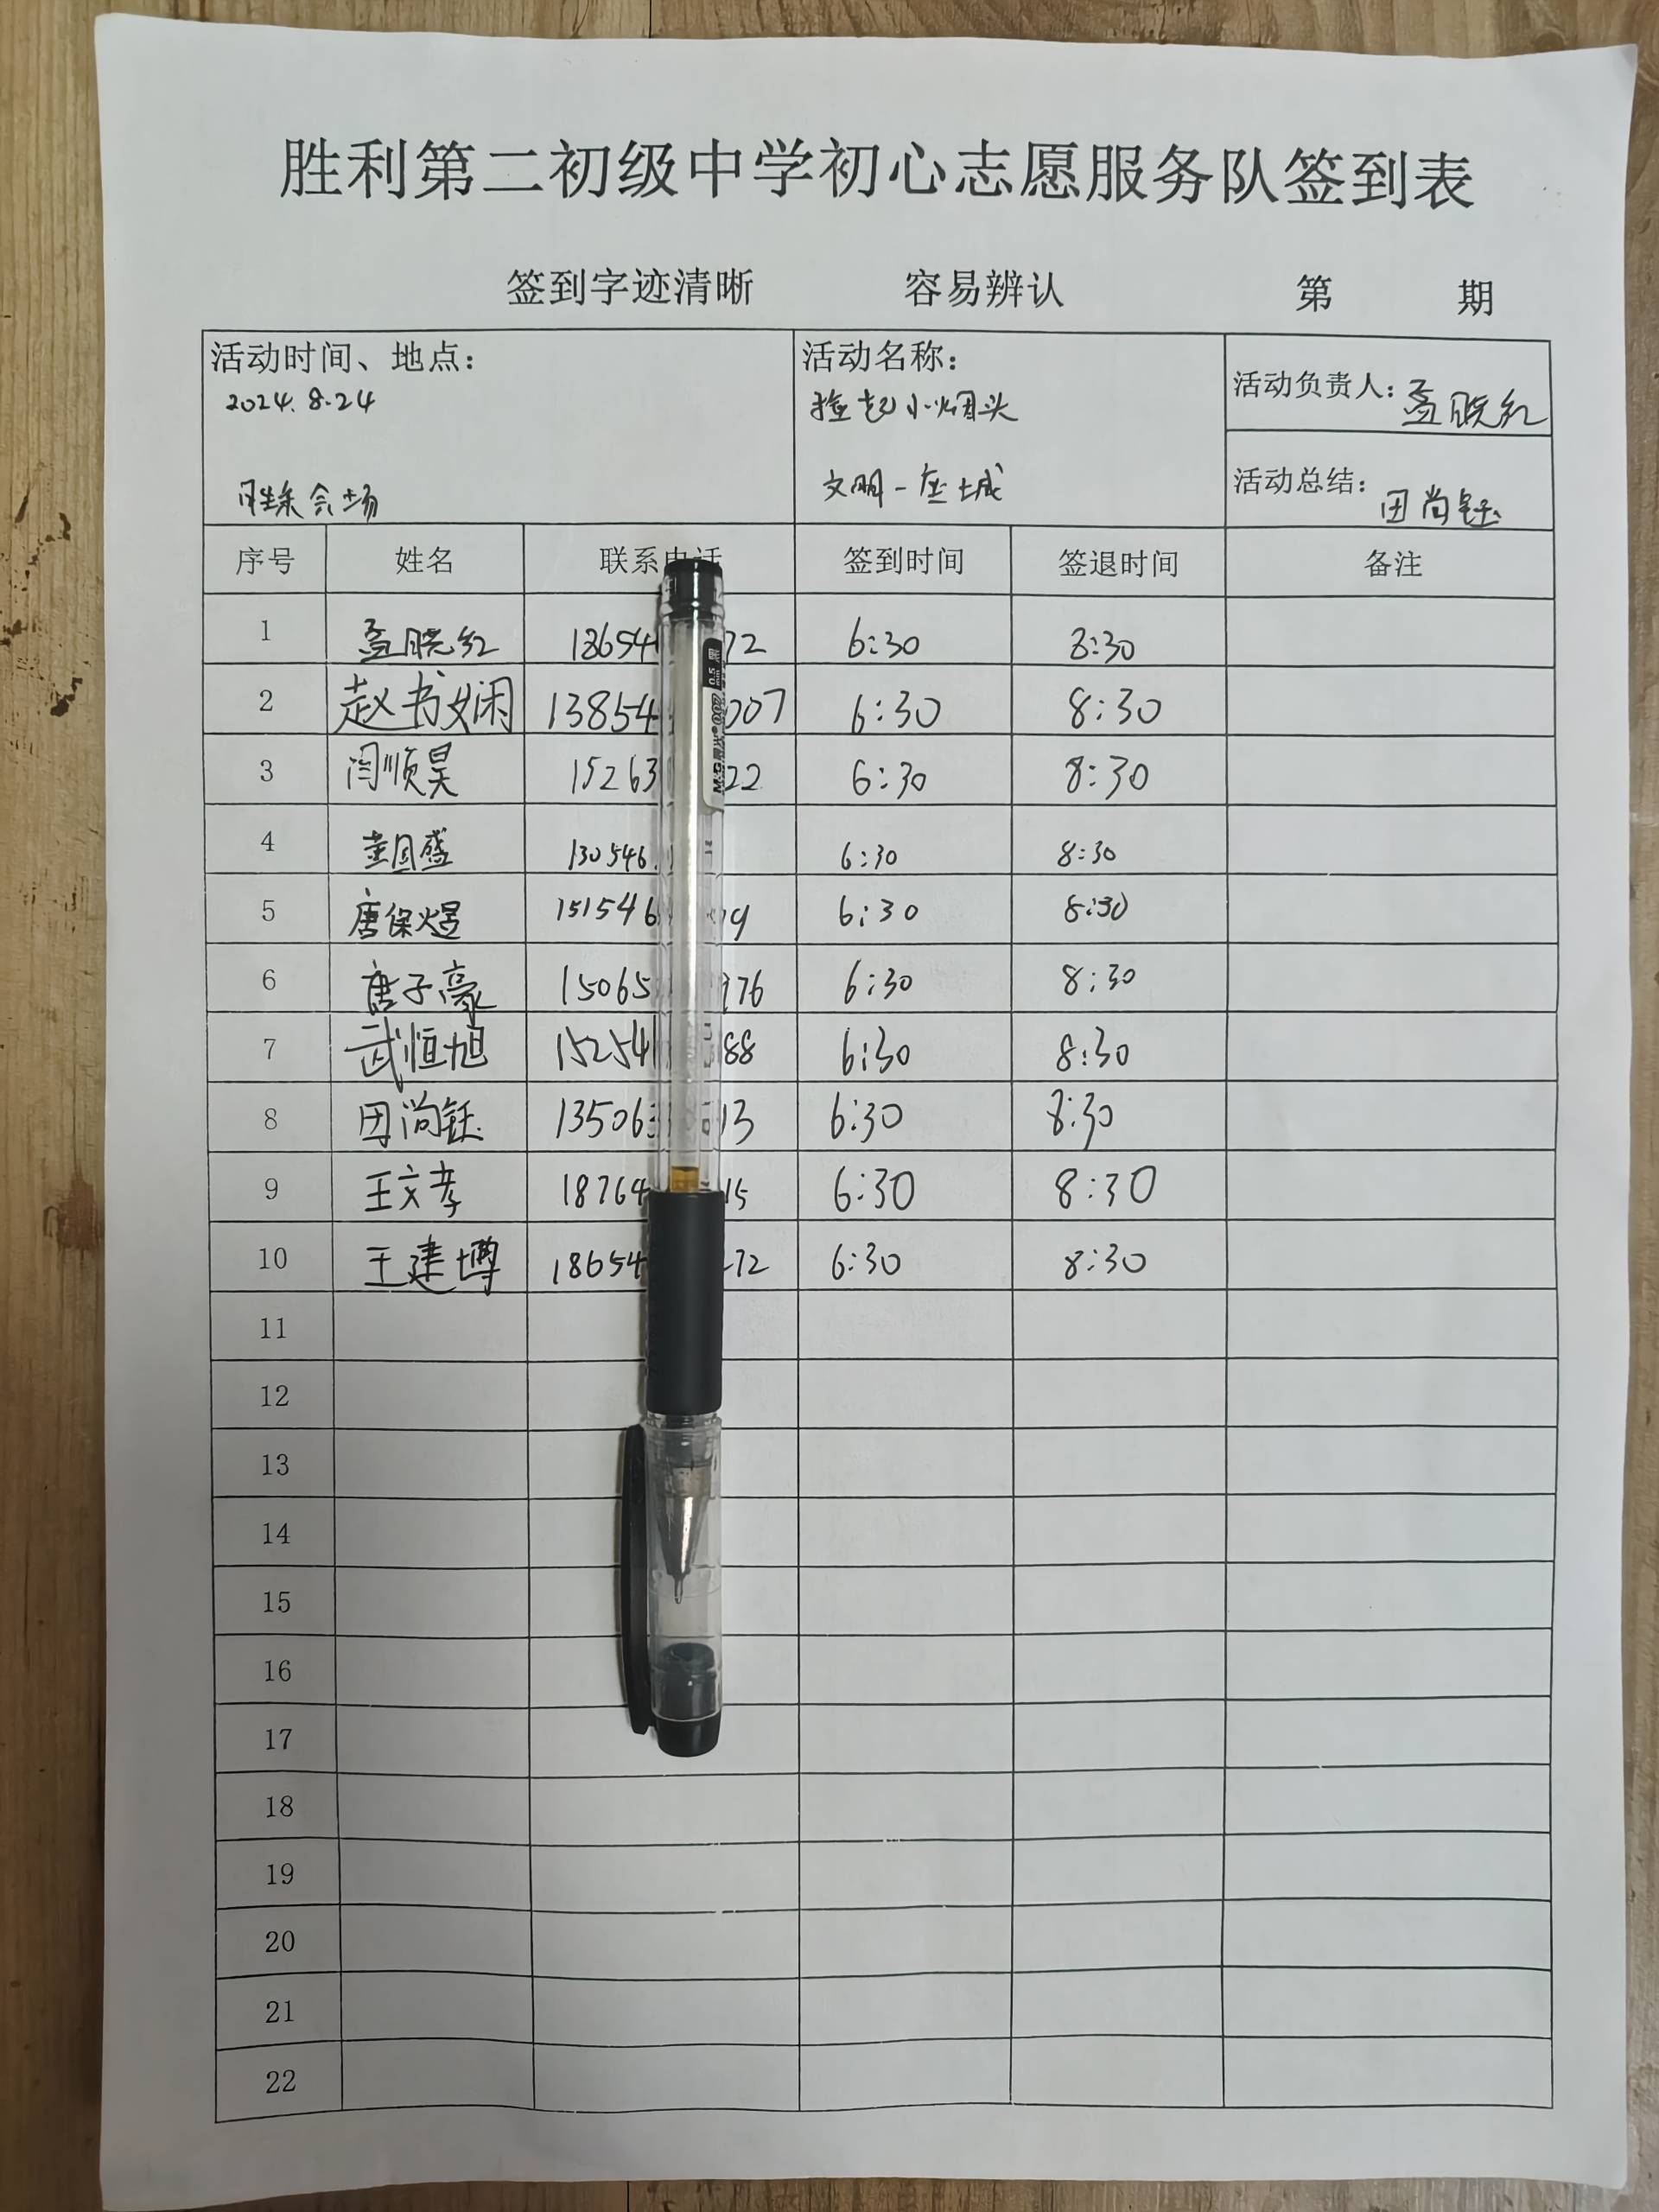 胜利第二初级中学初心志愿服务队签到表
签到字迹清晰 容易辨认 第 期
活动时间、地点： 活动名称： 活动负责人：孟晓红
2024.8.24 捡起小烟头
胜东会场 文明一座城 活动总结：田尚钰
序号 姓名 联系电话 签到时间 签退时间 备注
1 孟晓红 18654 72 6:30 8:30
2 赵书娴 13854 007 6:30 8:30
3 闫顺昊 15263 22 6:30 8:30
4 董国盛 130546 6:30 8:30
5 唐保煜 151546 9 6:30 8:30
6 唐子豪 15065 976 6:30 8:30
7 武恒旭 15254 88 6:30 8:30
8 田尚钰 135063 13 6:30 8:30
9 王文孝 18764 15 6:30 8:30
10 王建博 18654 72 6:30 8:30
11
12
13
14
15
16
17
18
19
20
21
22